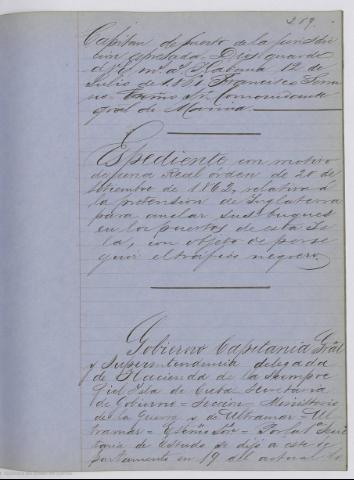 219.
Capitan de puerto de la jurisdic
cion espresada = Dios guarde
á V. E. m.s a.s Habana 12 de
Julio de 1860 Francisco
Escmo. Sr. Comandante
gral de Marina.
Espediente con motivo
de una Real órden de 20 de
setiembre de 1862, relativa á
la pretension de Inglaterra
para anclar sus buques
en los puertos de esta Is
la, con objeto de perse
guir el tráfico negrero.
Gobierno Capitanía Gral
y Superintendencia delegada
de Hacienda de la siempre
fiel Isla de Cuba Secretaria
de Gobierno = Seccion Ministerio
de la Guerra y de Ultramar = Ul
tramar = Escmo Sor = Por la 1ª Secre
taria de Estado se dijo a este de
partamento en 19 del actual lo